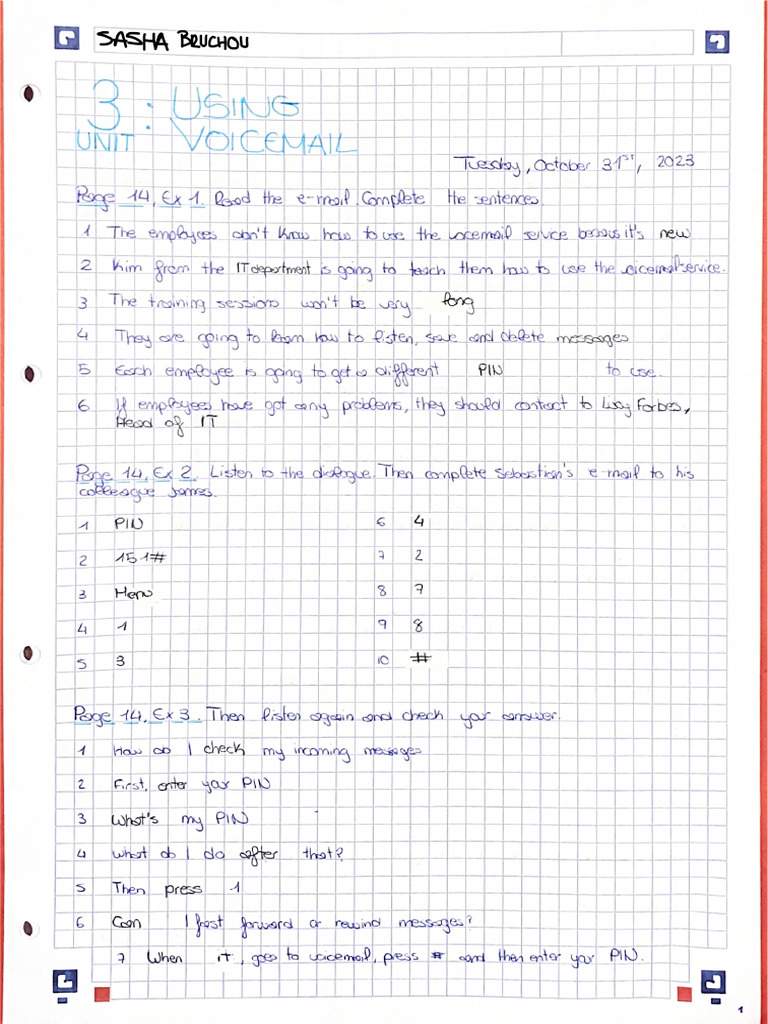 SASHA BRUCHOU
3 : USING
UNIT VOICEMAIL
Tuesday, October 31ST, 2023
Page 14, Ex 1. Read the e-mail. Complete the sentences.
1 The employees don't know how to use the voicemail service because it's new
2 Kim from the IT department is going to teach them how to use the voicemail service.
3 The training sessions won't be very long
4 They are going to learn how to listen, save and delete messages
5 Each employee is going to get a different PIN to use.
6 If employees have got any problems, they should contact to Lucy Forbes,
Head of IT
Page 14, Ex 2. Listen to the dialogue. Then complete Sebastian's e-mail to his
colleague James.
1 PIN 6 4
2 151# 7 2
3 Menu 8 7
4 1 9 8
5 3 10 #
Page 14, Ex 3. Then listen again and check your answer.
1 How do I check my incoming messages
2 First, enter your PIN
3 What's my PIN
4 What do I do after that?
5 Then press 1
6 Can I fast forward or rewind messages?
7 When it, goes to voicemail, press # and then enter your PIN.
1